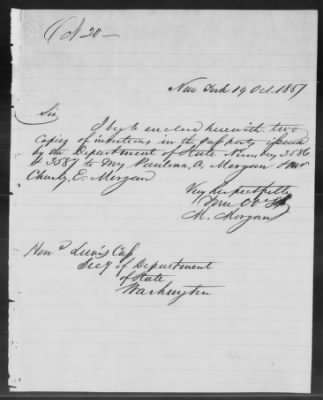 Oct 20 —
New York 19 Oct 1857
Sir
I beg to enclose herewith two
Copies of insertions in the passports issued
by the Department of State Numbers 3586
& 3587 to Mrs Paulina A. Morgan & Mr
Charles E. Morgan
Very Respectfully
Your Ob St
M. Morgan
Honb Lewis Cass
Secy of Department
of State
Washington